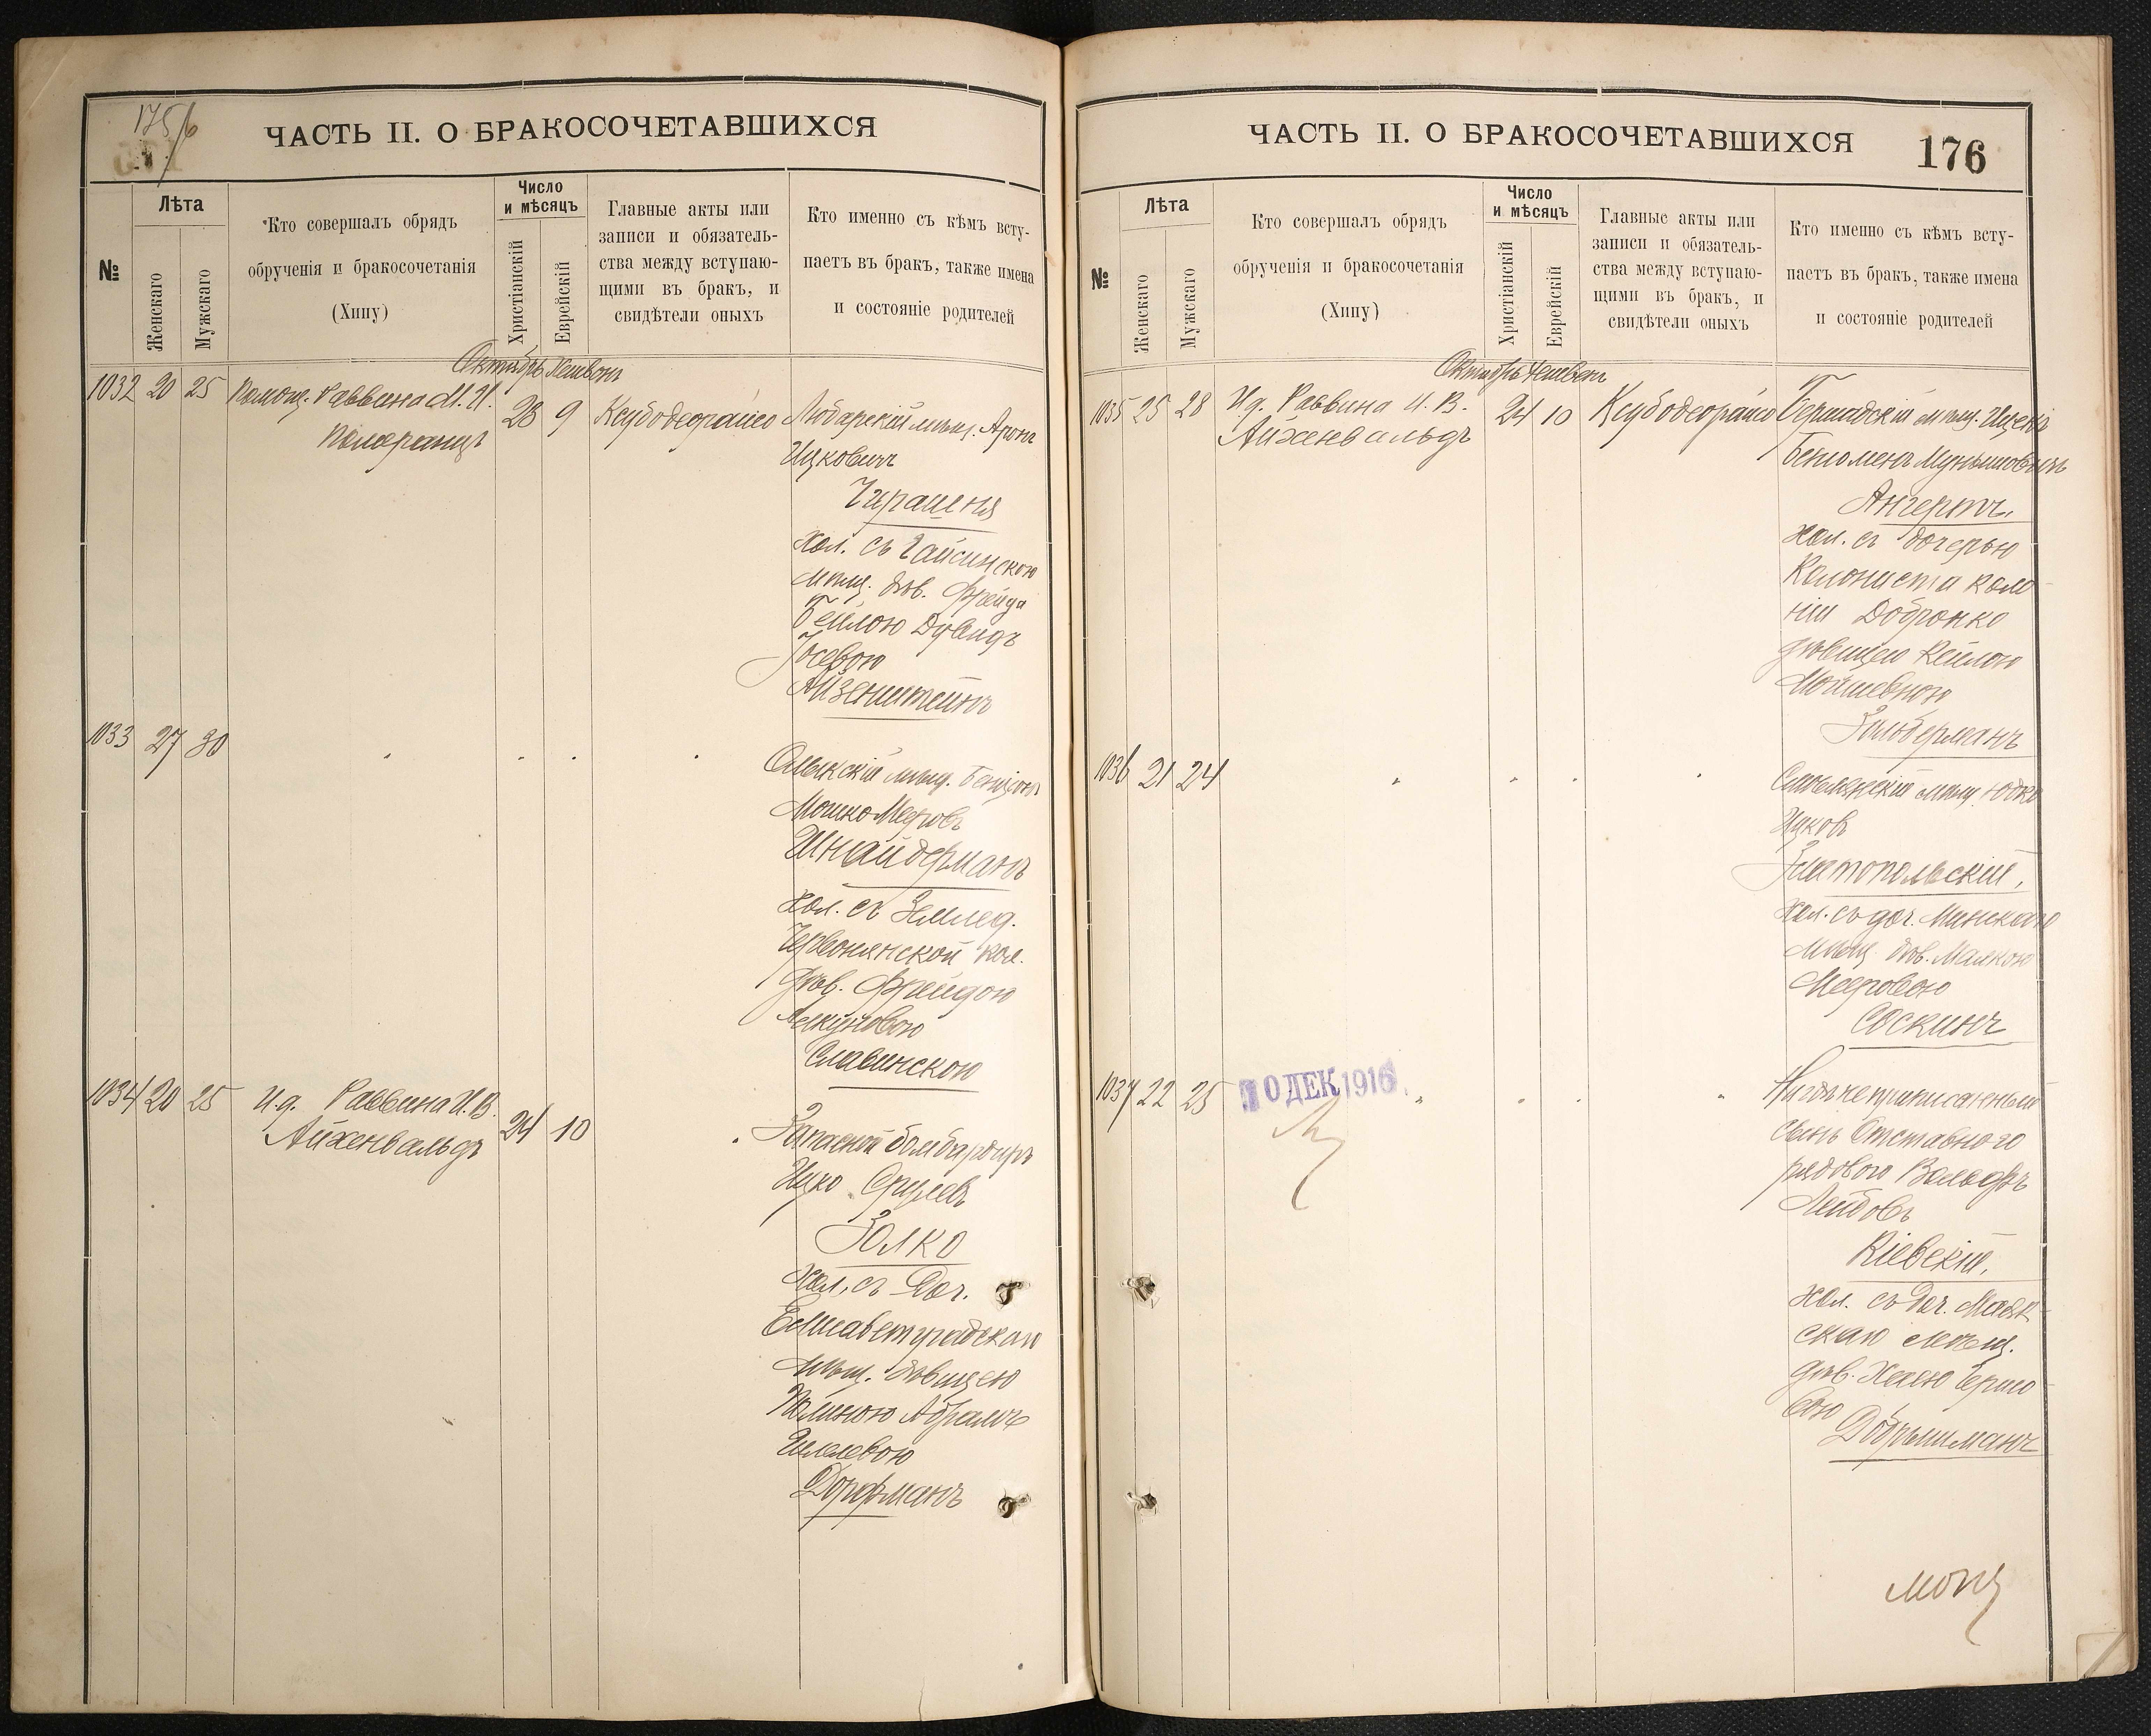 175/6
ЧАСТЬ II. О БРАКОСОЧЕТАВШИХСЯ
№
Лѣта
Женскаго
Мужскаго
Кто совершалъ обрядъ
обрученія и бракосочетанія
(Хипу)
Число
и мѣсяцъ
Христіанскій
Еврейскій
Главные акты или
записи и обязатель-
ства между вступаю-
щими въ бракъ, и
свидѣтели оныхъ
Кто именно съ кѣмъ всту-
паетъ въ бракъ, также имена
и состояніе родителей
Октябрь Хешвонъ
1032 20 25 Помощ. Раввина М. И.
Померанцъ
23 9 Ксубодеорайсо
Любарскій мѣщ. Аронъ
Ицковичъ
хол. съ Гайсинскою
мѣщ. дѣв. Фрейда
Бейлою Дувидъ
Іосевою
Айзенштейнъ
1033 27 30
Олыкскій мѣщ. Бенціонъ
Мошко Меровъ
Шнайдерманъ
хол. съ Землед.
Червонянской кол.
дѣв. Фрейдою
Славинскою
1034 20 25 И.д. Раввина И. В.
Айхенвальдъ
24 10
Запасной бомбардиръ
Ицко Срулевъ
Золко
хол. съ Доч.
Елисаветградскаго
мѣщ. дѣвицею
Полиною Абрамъ
Дорфманъ
ЧАСТЬ II. О БРАКОСОЧЕТАВШИХСЯ
176
№
Лѣта
Женскаго
Мужскаго
Кто совершалъ обрядъ
обрученія и бракосочетанія
(Хипу)
Число
и мѣсяцъ
Христіанскій
Еврейскій
Главные акты или
записи и обязатель-
ства между вступаю-
щими въ бракъ, и
свидѣтели оныхъ
Кто именно съ кѣмъ всту-
паетъ въ бракъ, также имена
и состояніе родителей
Октябрь Хешвенъ
1035 25 28 И.д. Раввина И. В.
Айхенвальдъ
24 10 Ксубодеорайсо
Бершадскій мѣщ.
Беніоменъ
Ангертъ,
хол. съ дочерью
Колониста коло-
ніи Добронко
дѣвицею Кейлою
Мойшевною
Зильберманъ
1036 21 24
мѣщ. Юдко
Ицковъ
Златопольскій,
хол. съ доч. Минскаго
мѣщ. дѣв. Малкою
Мееровою
Соскинъ
1037 22 25
10 ДЕК 1916
Нигдѣ неприписанный
сынъ Отставного
рядового Вольфъ
Лейбовъ
Кіевскій,
хол. съ доч. Маяк-
скаго мѣщ.
дѣв. Хаею Гершо-
вою
Добрышманъ